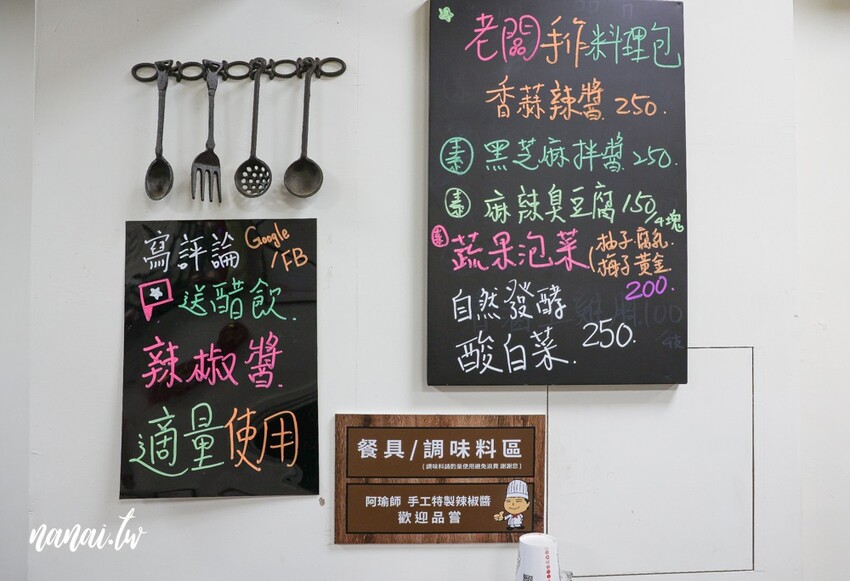 老闆手作料理包
香蒜辣醬 250.
素 黑芝麻拌醬 250.
素 麻辣臭豆腐 150/4塊
素 蔬果泡菜 (柚子.腐乳.
梅子黃金
200.
自然發酵
酸白菜. 250.
寫評論 Google/FB
送醋飲.
辣椒醬.
適量使用
餐具/調味料區
(調味料請酌量使用避免浪費 謝謝您)
阿瑜師 手工特製辣椒醬
歡迎品嘗
nanai.tw